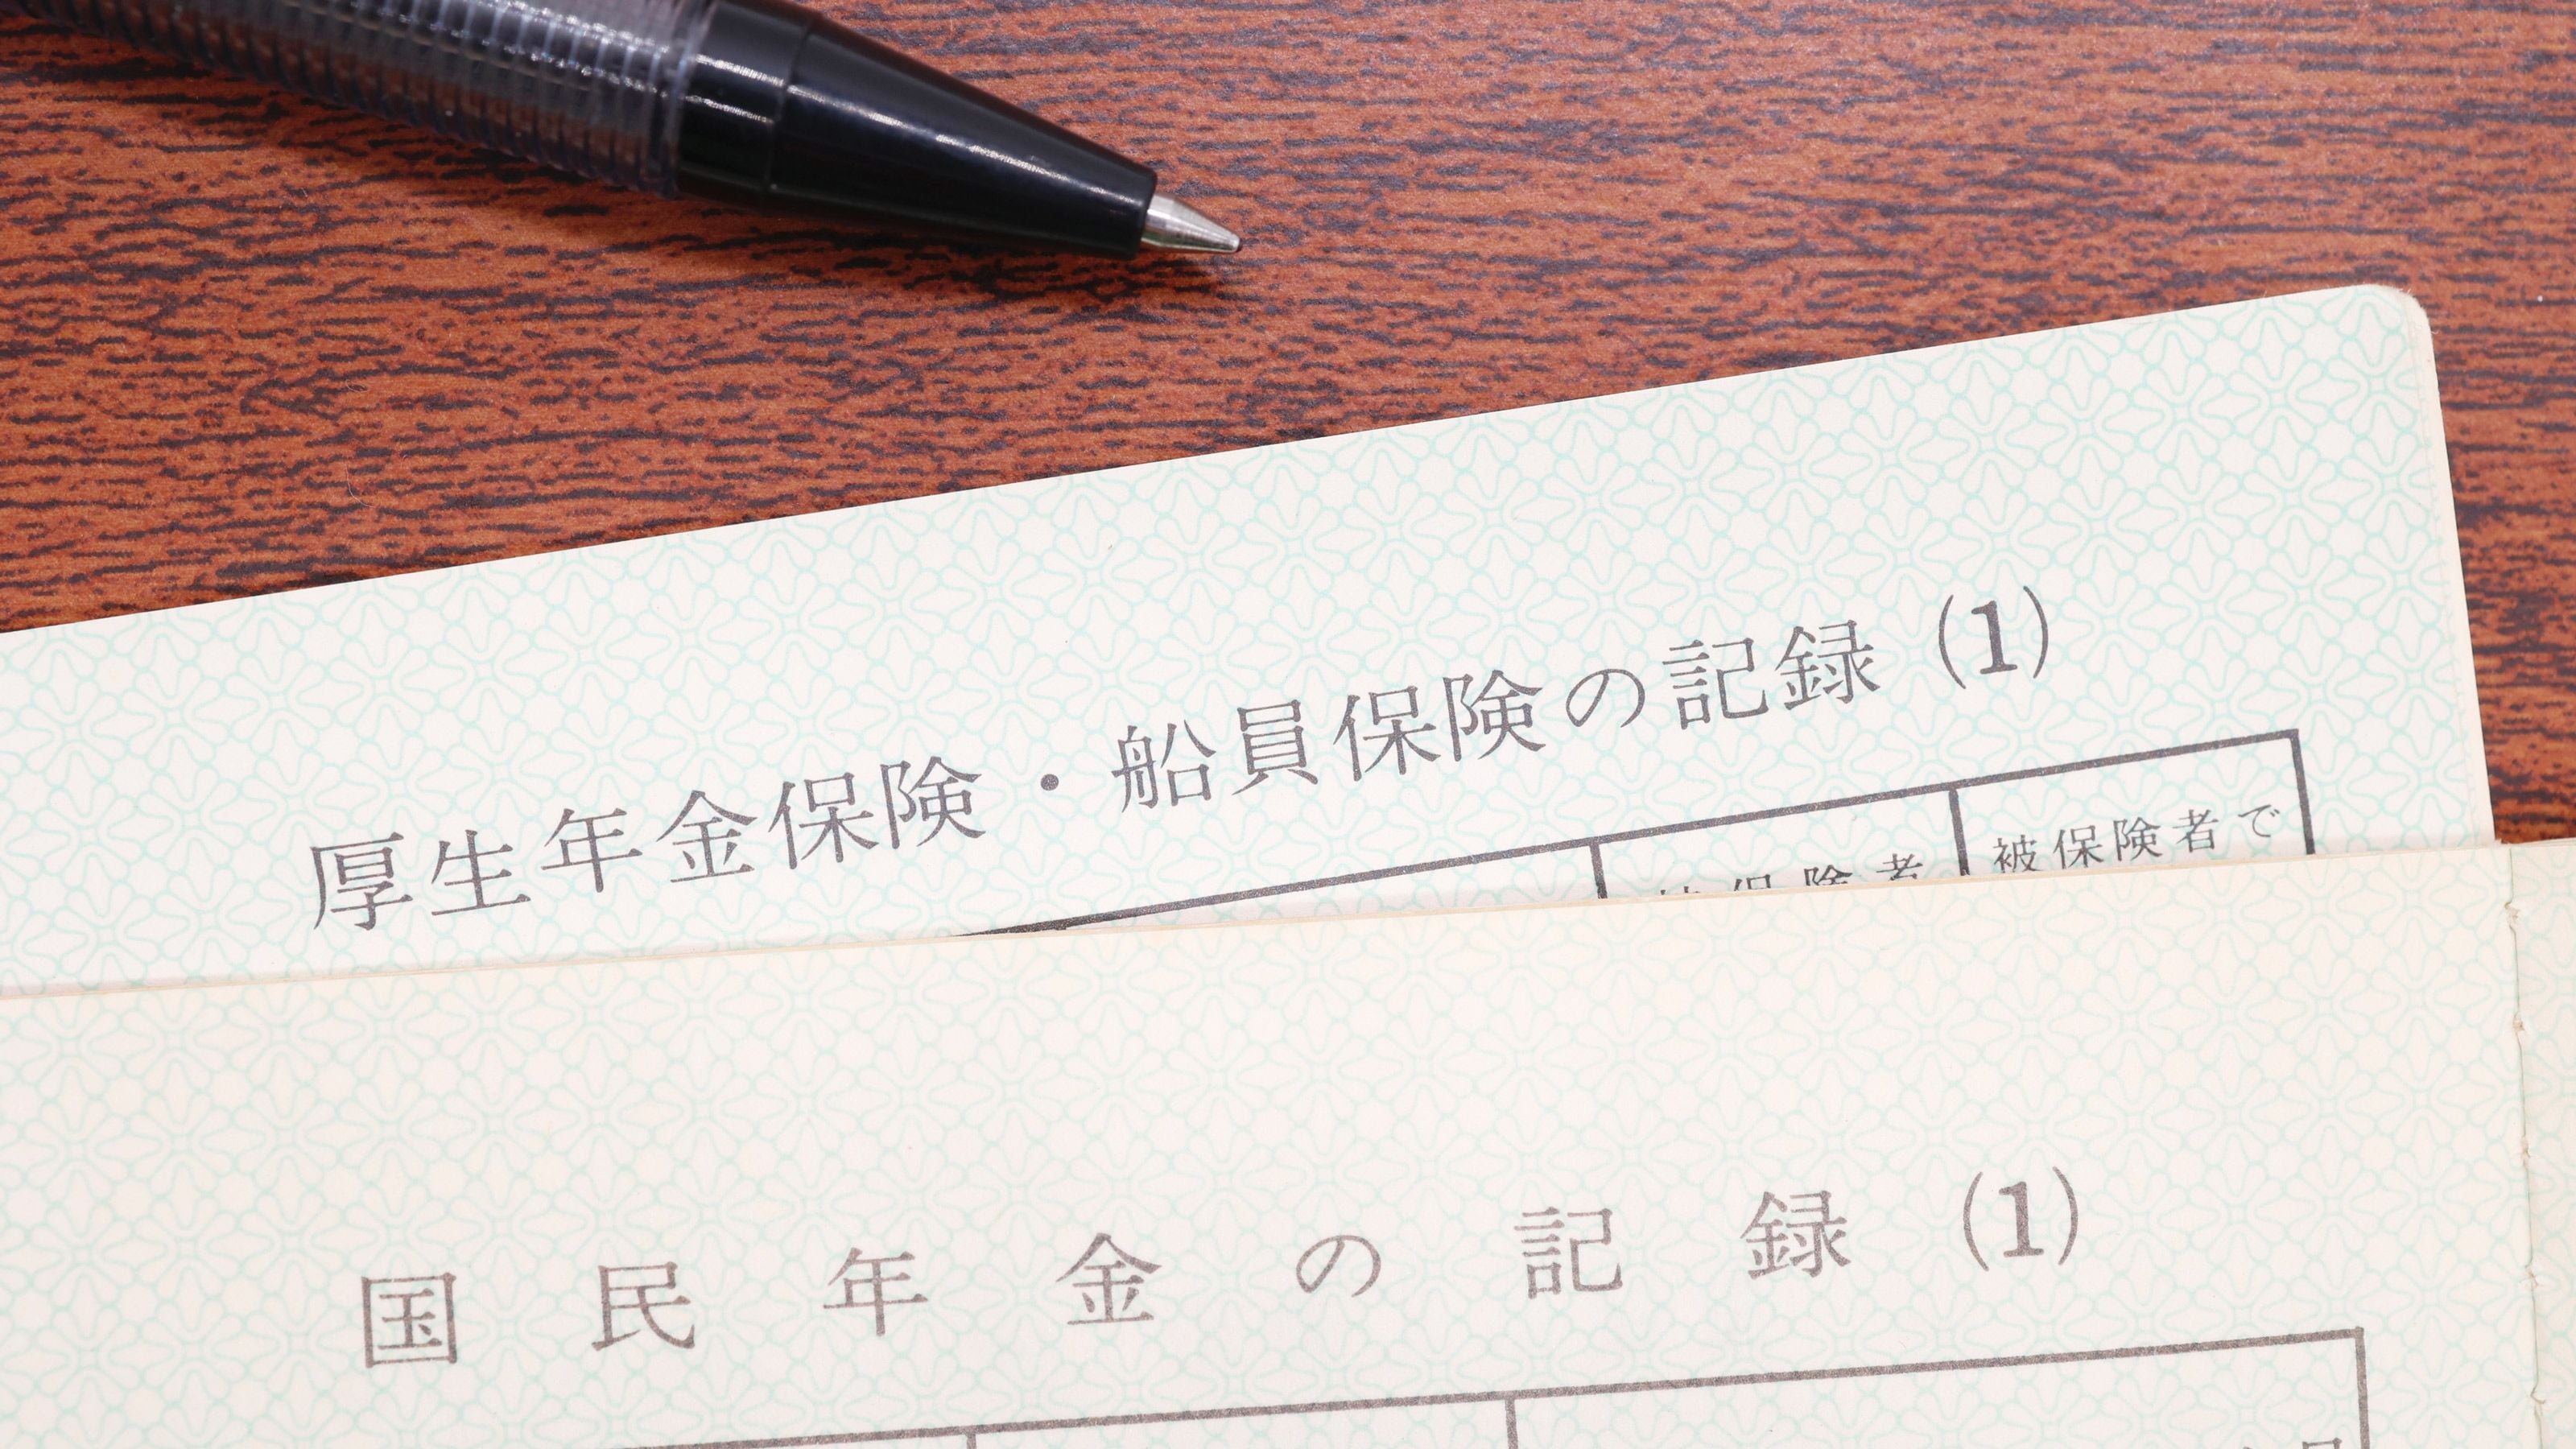 厚生年金保険・船員保険の記録 (1)
被保険者 被保険者で
国民年金の記録 (1)